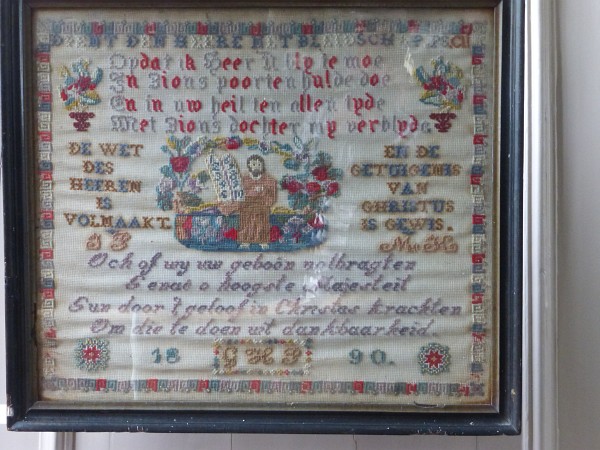 DIENT DEN HEERE MET BLYDSCHAP PSAL
Opdat ik Heer U lig te moe
In Zions poorten hulde doe
En in uw heil ten allen tyde
Met Zion's dochter my verblyde
DE WET
DES
HEEREN
IS
VOLMAAKT.
EN DE
GETUIGENIS
VAN
CHRISTUS
IS GEWIS.
Och of wy uw geboôn volbragten
Genae o hoogste Majesteit
Gun door 't geloof in Christus krachten
Om die te doen uit dankbaarheid.
18 G H P 90.